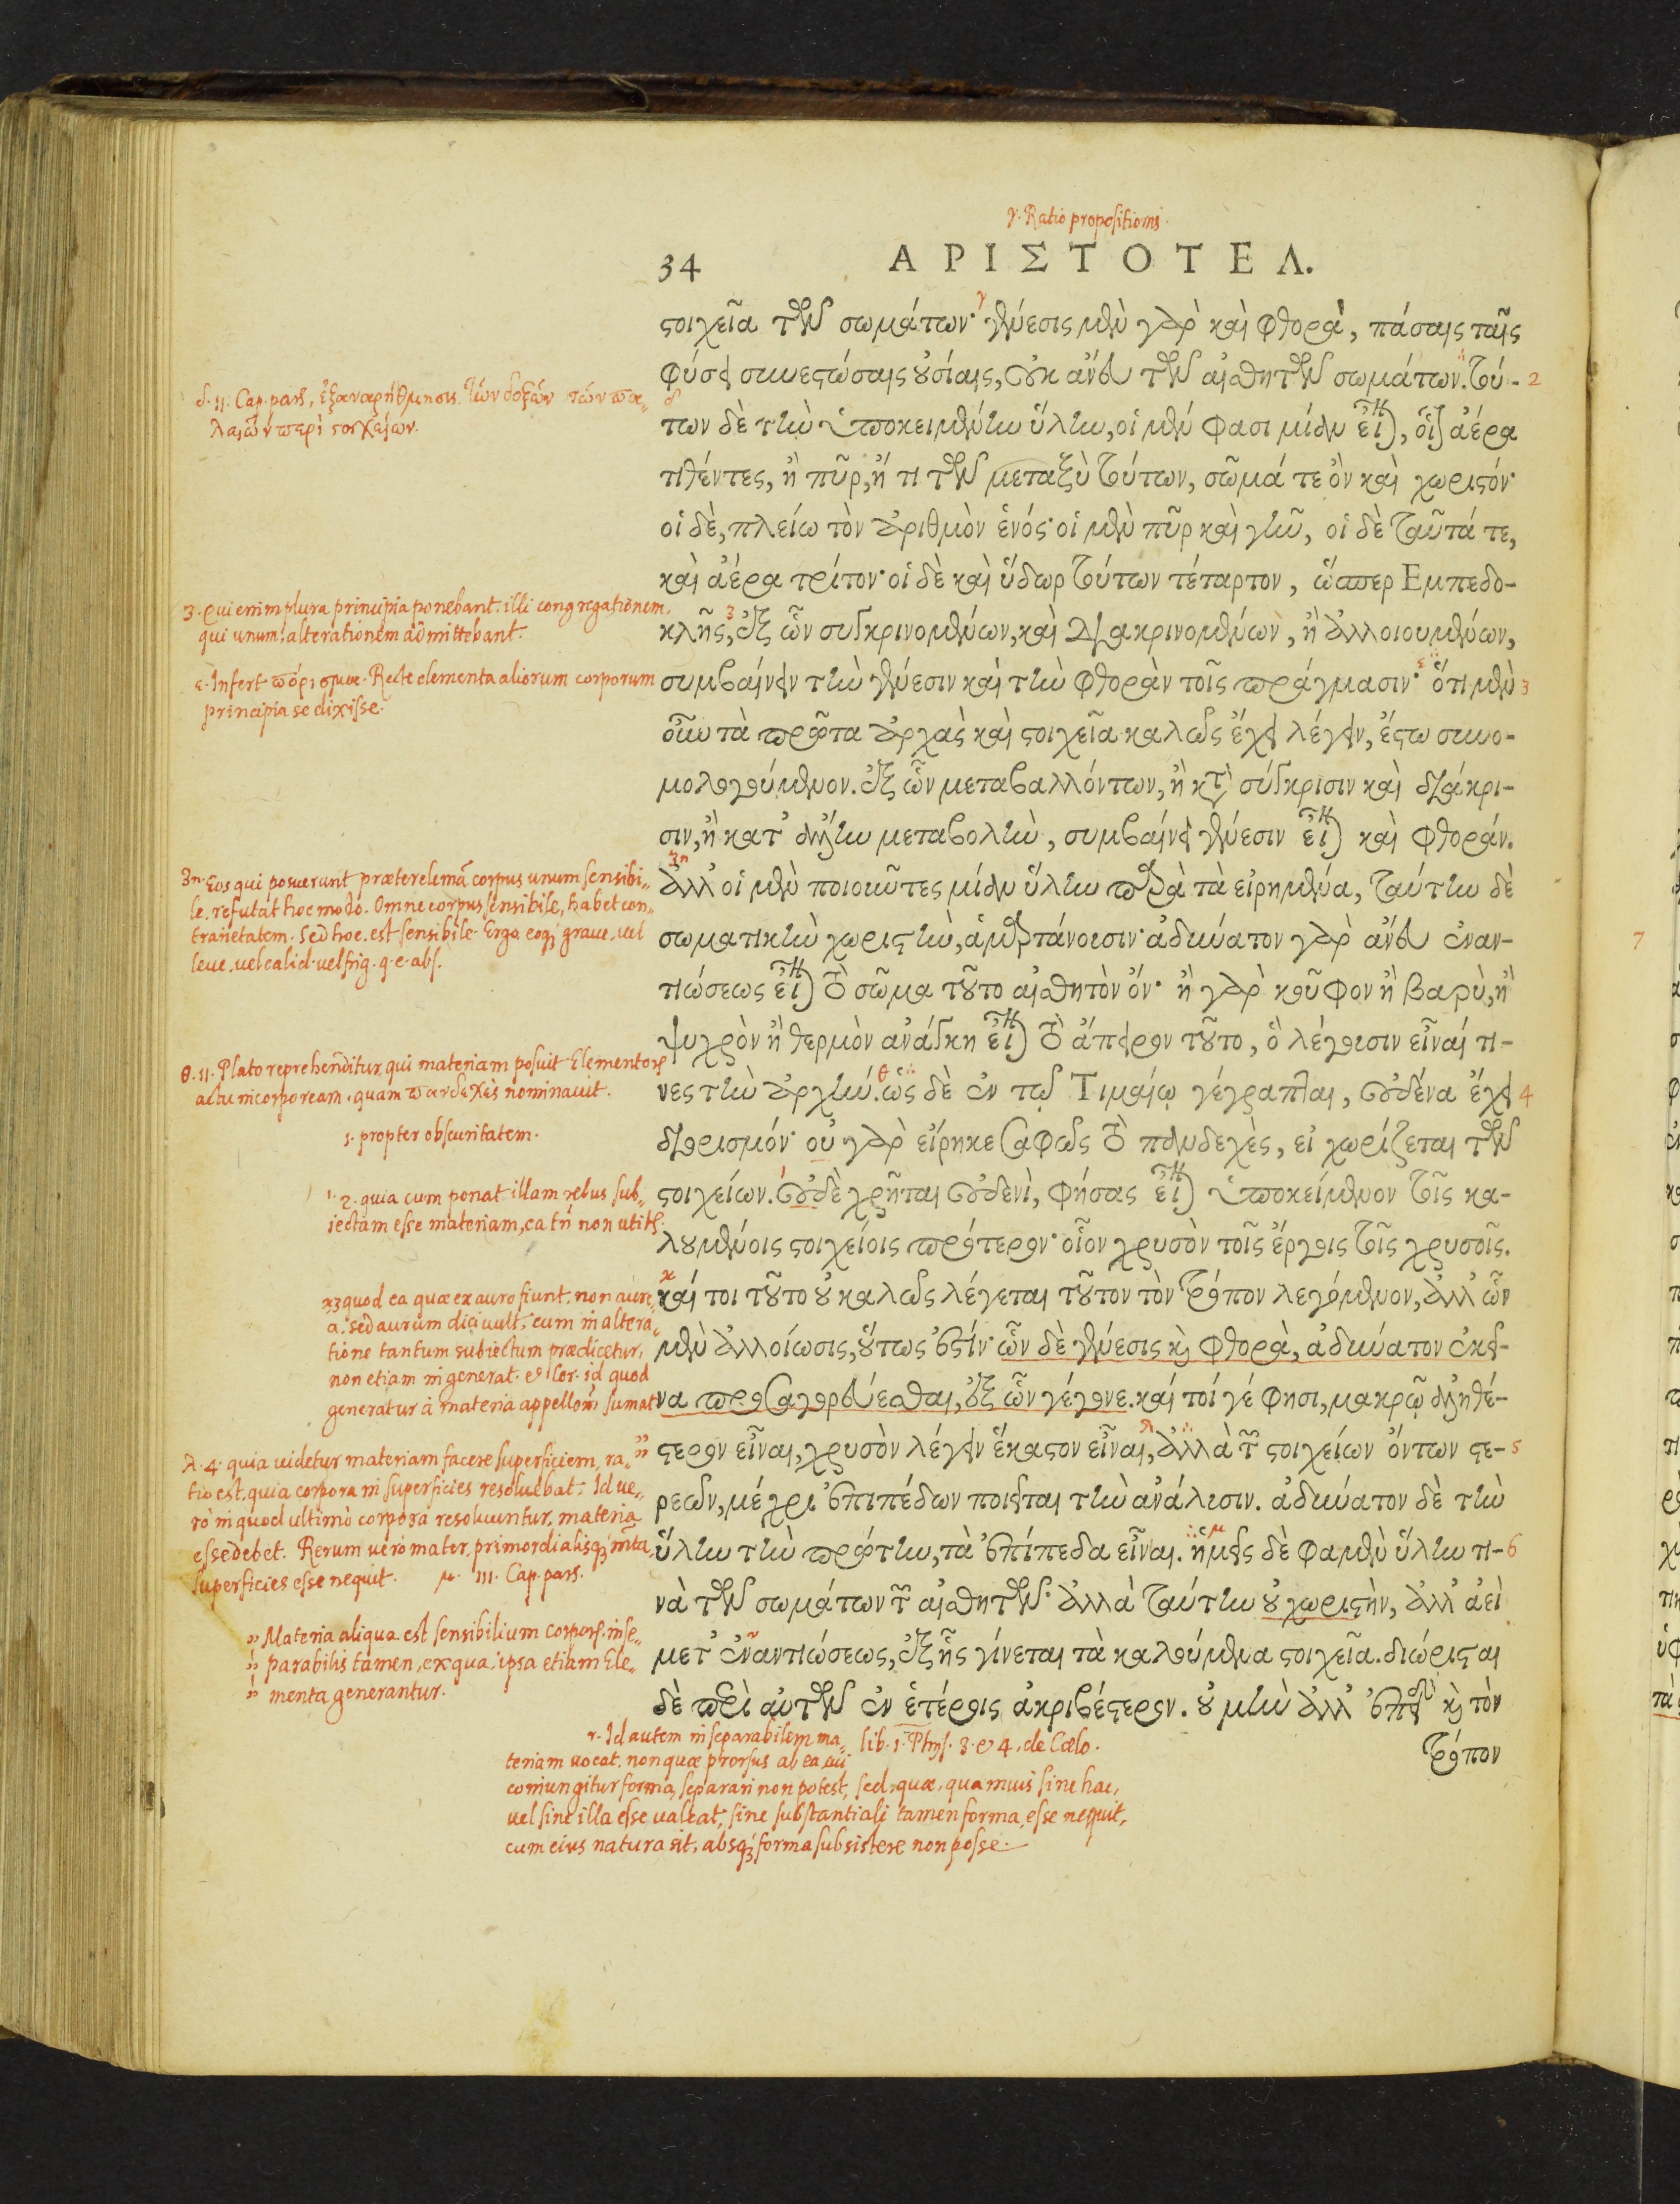 γ. Ratio propositionis.
34 ΑΡΙΣΤΟΤΕΛ.
ϛοιχεῖα τῶν σωμάτων· γένεσις μὲν γὰρ καὶ φθορὰ, πάσαις ταῖς
φύσει συνεϛώσαις οὐσίαις, οὐκ ἄνευ τῶν αἰσθητῶν σωμάτων. τού- 2
των δὲ τὴν ὑποκειμένην ὕλην, οἱ μέν φασι μίαν εἶναι, οἷον ἀέρα
τιθέντες, ἢ πῦρ, ἤ τι τῶν μεταξὺ τούτων, σῶμά τε ὂν καὶ χωριϛόν·
οἱ δὲ, πλείω τὸν ἀριθμὸν ἑνός· οἱ μὲν πῦρ καὶ γῆν, οἱ δὲ ταῦτά τε,
καὶ ἀέρα τρίτον· οἱ δὲ καὶ ὕδωρ τούτων τέταρτον, ὥσπερ Εμπεδο-
κλῆς, ἐξ ὧν συγκρινομένων, καὶ διακρινομένων, ἢ ἀλλοιουμένων,
συμβαίνειν τὴν γένεσιν καὶ τὴν φθορὰν τοῖς πράγμασιν· ὅτι μὲν 3
οὖν τὰ πρῶτα ἀρχὰς καὶ ϛοιχεῖα καλῶς ἔχει λέγειν, ἔϛω συνο-
μολογούμενον. ἐξ ὧν μεταβαλλόντων, ἢ κατὰ σύγκρισιν καὶ διάκρι-
σιν, ἢ κατ' ἄλλην μεταβολὴν, συμβαίνει γένεσιν εἶναι καὶ φθοράν.
ἀλλ' οἱ μὲν ποιοῦντες μίαν ὕλην παρὰ τὰ εἰρημένα, ταύτην δὲ
σωματικὴν χωριϛὴν, ἁμαρτάνουσιν· ἀδύνατον γὰρ ἄνευ ἐναν-
τιώσεως εἶναι τὸ σῶμα τοῦτο αἰσθητὸν ὄν· ἢ γὰρ κοῦφον ἢ βαρὺ, ἢ
ψυχρὸν ἢ θερμὸν ἀνάγκη εἶναι τὸ ἄπειρον τοῦτο, ὃ λέγουσιν εἶναί τι-
νες τὴν ἀρχήν. ὡς δὲ ἐν τῷ Τιμαίῳ γέγραπται, οὐδένα ἔχει 4
διορισμόν· οὐ γὰρ εἴρηκε σαφῶς τὸ πανδεχὲς, εἰ χωρίζεται τῶν
ϛοιχείων. οὐδὲ χρῆται οὐδενὶ, φήσας εἶναι ὑποκείμενον τοῖς κα-
λουμένοις ϛοιχείοις πρότερον· οἷον χρυσὸν τοῖς ἔργοις τοῖς χρυσοῖς.
καί τοι τοῦτο οὐ καλῶς λέγεται τοῦτον τὸν τρόπον λεγόμενον, ἀλλ' ὧν
μὲν ἀλλοίωσις, οὕτως ἐϛίν· ὧν δὲ γένεσις καὶ φθορὰ, ἀδύνατον ἐκεῖ-
να προσαγορεύεσθαι, ἐξ ὧν γέγονε. καί τοί γέ φησι, μακρῷ ἀληθέ-
ϛερον εἶναι, χρυσὸν λέγειν ἕκαϛον εἶναι, ἀλλὰ τῶν ϛοιχείων ὄντων ϛε- 5
ρεῶν, μέχρι ἐπιπέδων ποιεῖται τὴν ἀνάλυσιν. ἀδύνατον δὲ τὴν
ὕλην τὴν πρώτην, τὰ ἐπίπεδα εἶναι. ἡμεῖς δὲ φαμὲν ὕλην τι- 6
νὰ τῶν σωμάτων τῶν αἰσθητῶν· ἀλλὰ ταύτην οὐ χωριϛὴν, ἀλλ' ἀεὶ
μετ' ἐναντιώσεως, ἐξ ἧς γίνεται τὰ καλούμενα ϛοιχεῖα. διώριϛαι
δὲ περὶ αὐτῶν ἐν ἑτέροις ἀκριβέϛερον. οὐ μὴν ἀλλ' ἐπεὶ καὶ τὸν
τρόπον
δ. 11. Cap. pars, ἐξαναρήθμησις τῶν δοξῶν τῶν πα-
λαιῶν περὶ στοιχείων.
3. Qui enim plura principia ponebant, illi congregationem,
qui unum, alterationem admittebant.
ε. Infert πόρισμα. Recte elementa aliorum corporum
principia se dixisse.
3η. Eos qui posuerunt præter elemā corpus unum sensibi-
le, refutat hoc modo. Omne corpus sensibile, habet con-
trarietatem. Sed hoc est sensibile. Ergo eoq; graue, uel
leue, uel calid. uel frig. q. e. abs.
θ. 11. Plato reprehenditur, qui materiam posuit Elementorū
aliū incorpoream, quam πανδεχὲς nominauit.
1. propter obscuritatem.
1. 2. quia cum ponat illam rebus sub-
iectam esse materiam, ea tn̄ non utitr.
κ3 quod ea quæ ex auro fiunt, non aure-
a, sed aurum dici uult, cum in altera-
tione tantum subiectum prædicetur,
non etiam in generat. & cor. id quod
generatur à materia appellōm̄ sumat
λ. 4. quia uidetur materiam facere superficiem, ra-
tio est, quia corpora in superficies resoluebat. Id ue-
rò in quod ultimò corpora resoluuntur, materia
esse debet. Rerum uerò mater, primordialisq; mta,
superficies esse nequit. μ. 111. Cap. pars.
Materia aliqua est sensibilium corporū inse-
parabilis tamen, ex qua ipsa etiam Ele-
menta generantur.
r. Id autem inseparabilem ma- lib. 1. Phys. 3. & 4. de Cælo.
teriam uocat, non quæ prorsus ab ea cui
coniungitur forma, separari non potest, sed quæ, quamuis sine hac,
uel sine illa esse ualeat, sine substantiali tamen forma esse nequit,
cum eius natura sit, absq; forma subsistere non posse.
7